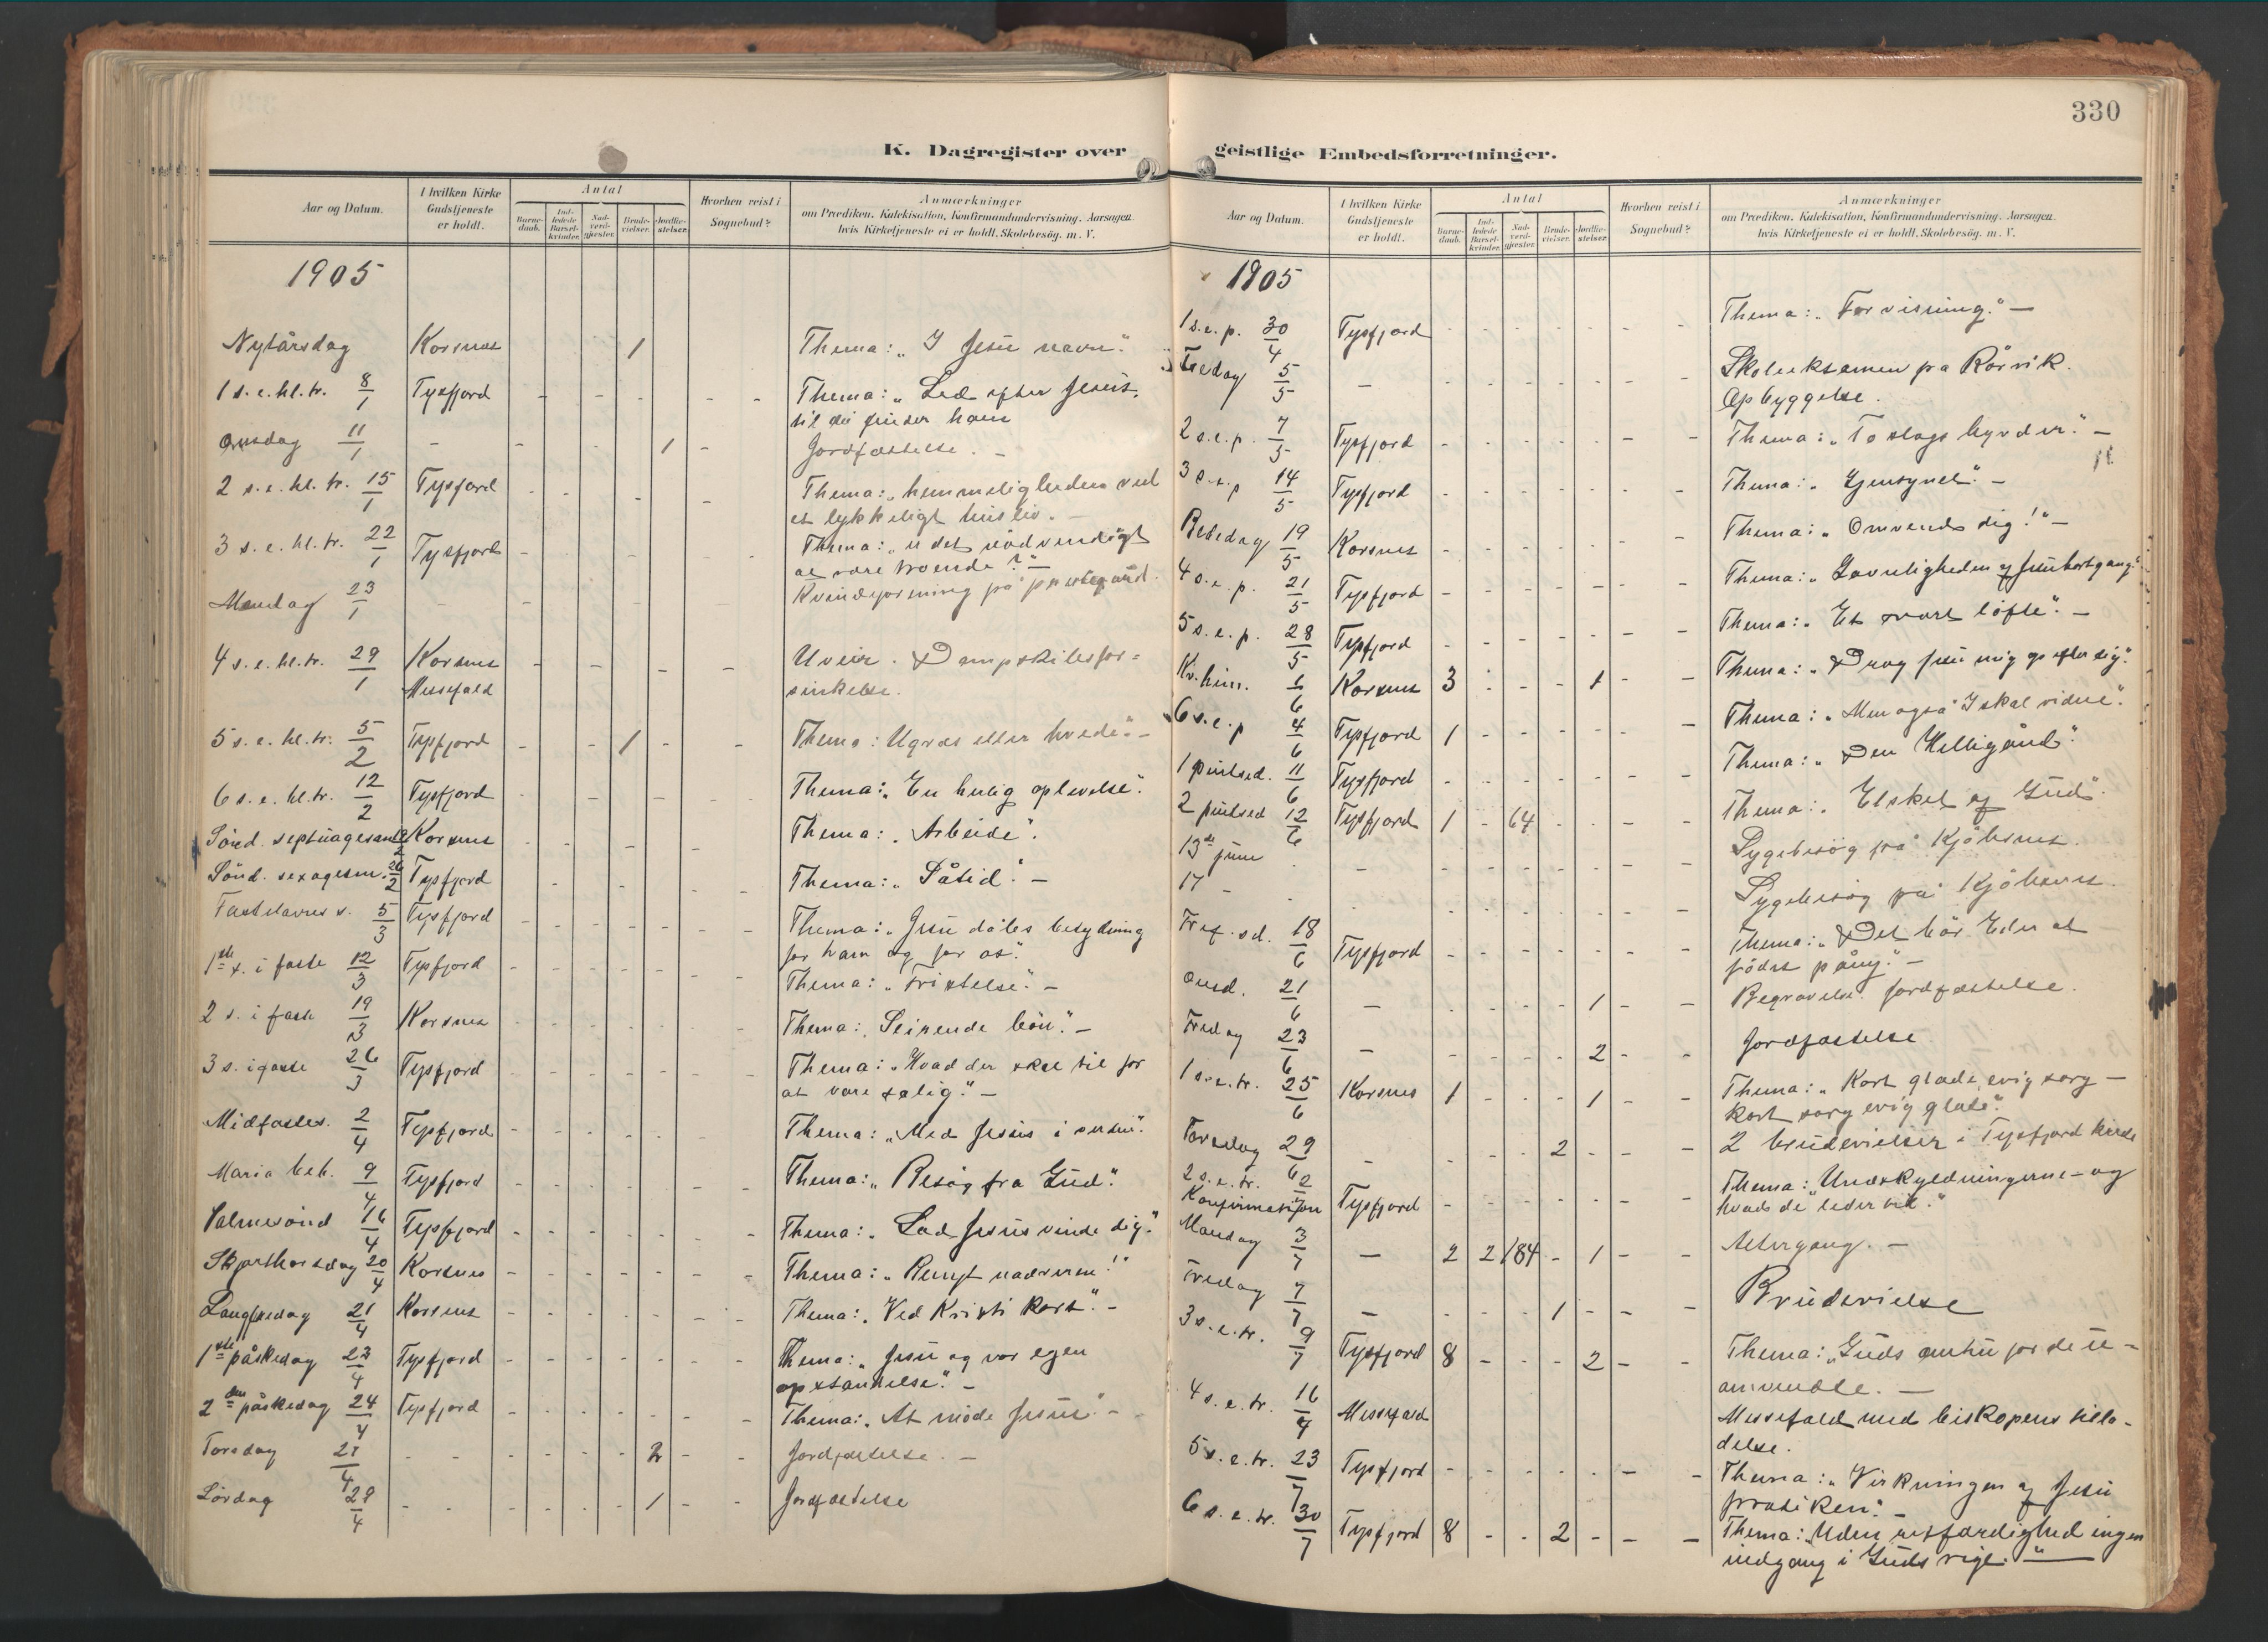 330
K. Dagregister over geistlige Embedsforretninger.
Aar og Datum. I hvilken Kirke Gudstjeneste er holdt. Antal Barne-daab. Ind-ledede Barsel-kvinder. Nad-verd-gjester. Brude-vielser. Jordfæ-stelser. Hvorhen reist i Sognebud? Anmærkninger om Prædiken, Katekisation, Konfirmandundervisning, Aarsagen hvis Kirketjeneste ei er holdt, Skolebesøg. m. V.
1905
Nytårsdag Korsnes 1 Thema: „I Jesu navn".
1 s. e. hl. tr. 8/1 Tysfjord - - - - - Thema: „Led efter Jesus,
til du finder ham
Onsdag 11/1 - - - 1 - Jordfæstelse. -
2 s. e. hl. tr. 15/1 Tysfjord - - - - - Thema: „hemmeligheden ved
et lykkeligt husliv. -
3 s. e. hl. tr. 22/1 Tysfjord - - - - - Thema: „er det nødvendigt
at være troende?" -
Mandag 23/1 - - - - - Kvindeforening på prestegård.
4 s. e. hl. tr. 29/1 Korsnes - - - - - Uveir. Dampskibsfor=
Messefald sinkelse.
5 s. e. hl. tr. 5/2 Tysfjord - - - 1 - - Thema: Ugræs eller hvede" -
6 s. e. hl. tr. 12/2 Tysfjord - - - - - Thema: „En herlig oplevelse".
Sönd. septuagesima 19/2 Korsnes - - - - - Thema: „Arbeide".
Sönd. sexagesm. 26/2 Tysfjord - - - - - Thema: „Såtid". -
Fastelavns s. 5/3 Tysfjord - - - - - Thema: „Jesu dåbs betydning
for ham og for os".
1ste s. i faste 12/3 Tysfjord - - - - - Thema: „Fristelse". -
2 s. i faste 19/3 Korsnes - - - - - Thema: „Seirende bön". -
3 s. i faste 26/3 Tysfjord - - - - - Thema: „Hvad der skal til for
at være salig". -
Midfastes. 2/4 Tysfjord - - - - - Thema: „Med Jesus i
Maria beb. 9/4 Tysfjord - - - - - Thema: „Besög fra Gud".
Palmesönd 16/4 Tysfjord - - - - - Thema: „Lad Jesus vinde dig".
Skjærthorsdag 20/4 Korsnes - - - - - Thema: „Benyt nadveren!"
Langfredag 21/4 Korsnes - - - - - Thema: „Ved Kristi kors". -
1ste påskedag 23/4 Tysfjord - - - - - Thema: „Jesu og vor egen
opstandelse". -
2den påskedag 24/4 Tysfjord - - - - - Thema: „At möde Jesus" -
Torsdag 27/4 - - - - - 2 - - Jordfæstelse. -
Lördag 29/4 - - - - - 1 - - Jordfæstelse
Aar og Datum. I hvilken Kirke Gudstjeneste er holdt. Antal Barne-daab. Ind-ledede Barsel-kvinder. Nad-verd-gjester. Brude-vielser. Jordfæ-stelser. Hvorhen reist i Sognebud? Anmærkninger om Prædiken, Katekisation, Konfirmandundervisning, Aarsagen hvis Kirketjeneste ei er holdt, Skolebesøg. m. V.
1905
1 s. e. p. 30/4 Tysfjord - - - - - Thema: „Forvisning". -
Fredag 5/5 - - - - - - Skoleeksamen på Rörvik.
Opbyggelse.
2 s. e. p. 7/5 Tysfjord - - - - - Thema: „To slags hyrder". -
3 s. e. p 14/5 Tysfjord - - - - - Thema: „Gjensynet". -
Bededag 19/5 Korsnes - - - - - Thema: „Omvend dig!" -
4 s. e. p. 21/5 Tysfjord - - - - - Thema: „Gavnligheden af Jesu bortgang".
5 s. e. p. 28/5 Tysfjord - - - - - Thema: „Et svart löfte". -
Kr. him. 1/6 Korsnes 3 - - - 1 - - Thema: „Drag Jesu mig op efter dig".
6 s. e. p 4/6 Tysfjord 1 - - - - - Thema: „Men også I skal vidne".
1 pintsed. 11/6 Tysfjord - - - - - Thema: „Den Helligånd".
2 pintsed 12/6 Tysfjord 1 - 64 - - - Thema: „Elsket af Gud".
13de juni - - - - - Sygebesög på Kjöbsnes.
17 - - - - - - Sygebesög på Kjöbsnes.
Tref. sd. 18/6 Tysfjord - - - - - Thema: „Det bör Eder at
födes påny". -
Onsd. 21/6 - - - - - 1 - - Begravelse. Jordfæstelse.
Fredag 23/6 - - - - - 2 - - Jordfæstelse
1 s. e. tr. 25/6 Korsnes 1 - - - 1 - - Thema: „Kort glæde, evig sorg -
kort sorg evig glæde".
Torsdag 29/6 - - - - 2 - - - 2 brudevielser i Tysfjord kirke
2 s. e. tr. 2 Thema: Undskyldningerne - og
Konfirmation Tysfjord - - - - - hvad de leder til."
Mandag 3/7 - 2 2 184 - 1 - - Altergang. -
Fredag 7/7 - - - - 1 - - - Brudevielse
3 s. e. tr. 9/7 Tysfjord 8 - - - 2 - - Thema: „Guds omhu for de u-
omvendte. -
4 s. e. tr. 16/7 Messefald Messefald med biskopens tilla-
delse.
5 s. e. tr. 23/7 Tysfjord - - - - - Thema: „Virkningen af Jesu
prædiken". -
6 s. e. tr. 30/7 Tysfjord 8 - - 2 - - - Thema: „Uden retfærdighed ingen
indgang i Guds rige." -